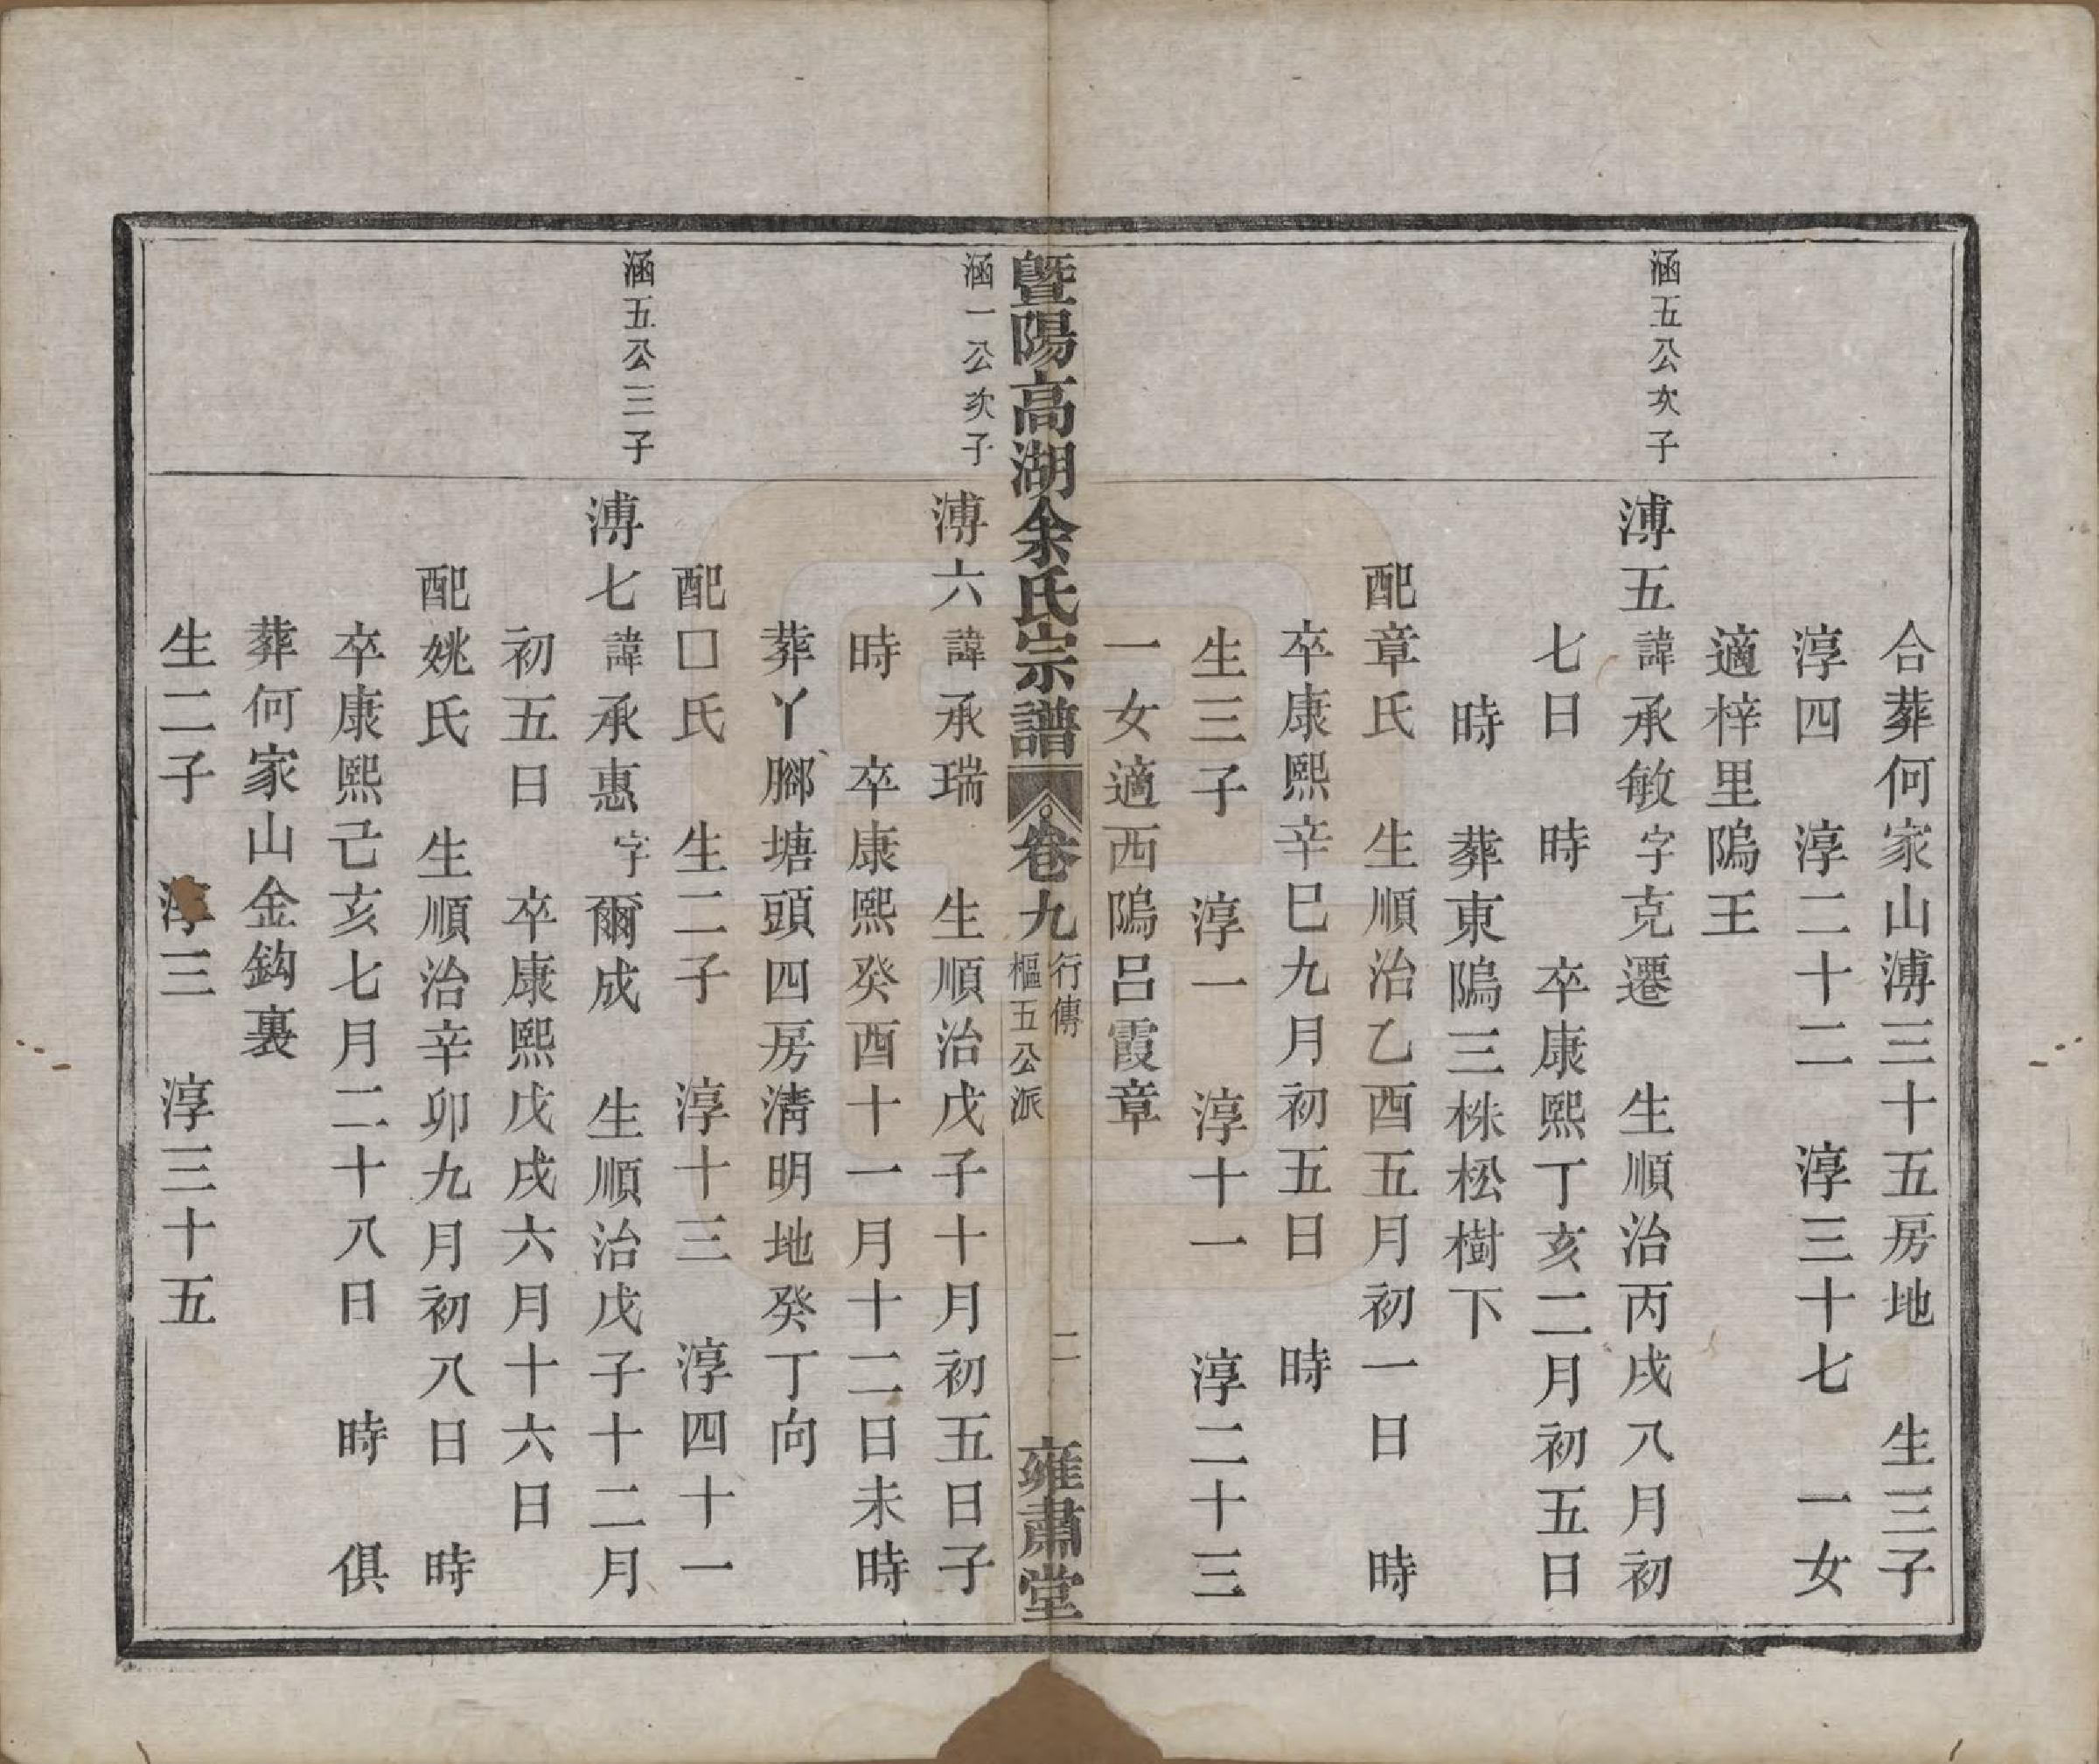 合葬何家山溥三十五房地　生三子
淳四　淳二十二　淳三十七　一女
適梓里隝王
涵五公次子
溥五諱承敏字克遷　生順治丙戌八月初
七日　時　卒康熙丁亥二月初五日
時　葬東隝三株松樹下
配章氏　生順治乙酉五月初一日　時
卒康熙辛巳九月初五日　時
生三子　淳一　淳十一　淳二十三
一女適西隝呂霞章
暨陽高湖余氏宗譜　卷九　行傳　樞五公派　二　雍肅堂
涵一公次子
溥六諱承瑞　生順治戊子十月初五日子
時　卒康熙癸酉十一月十二日未時
葬丫腳塘頭四房清明地癸丁向
配囗氏　生二子　淳十三　淳四十一
涵五公三子
溥七諱承惠字爾成　生順治戊子十二月
初五日　卒康熙戊戌六月十六日
配姚氏　生順治辛卯九月初八日　時
卒康熙己亥七月二十八日　時　俱
葬何家山金鈎裏
生二子　淳三　淳三十五